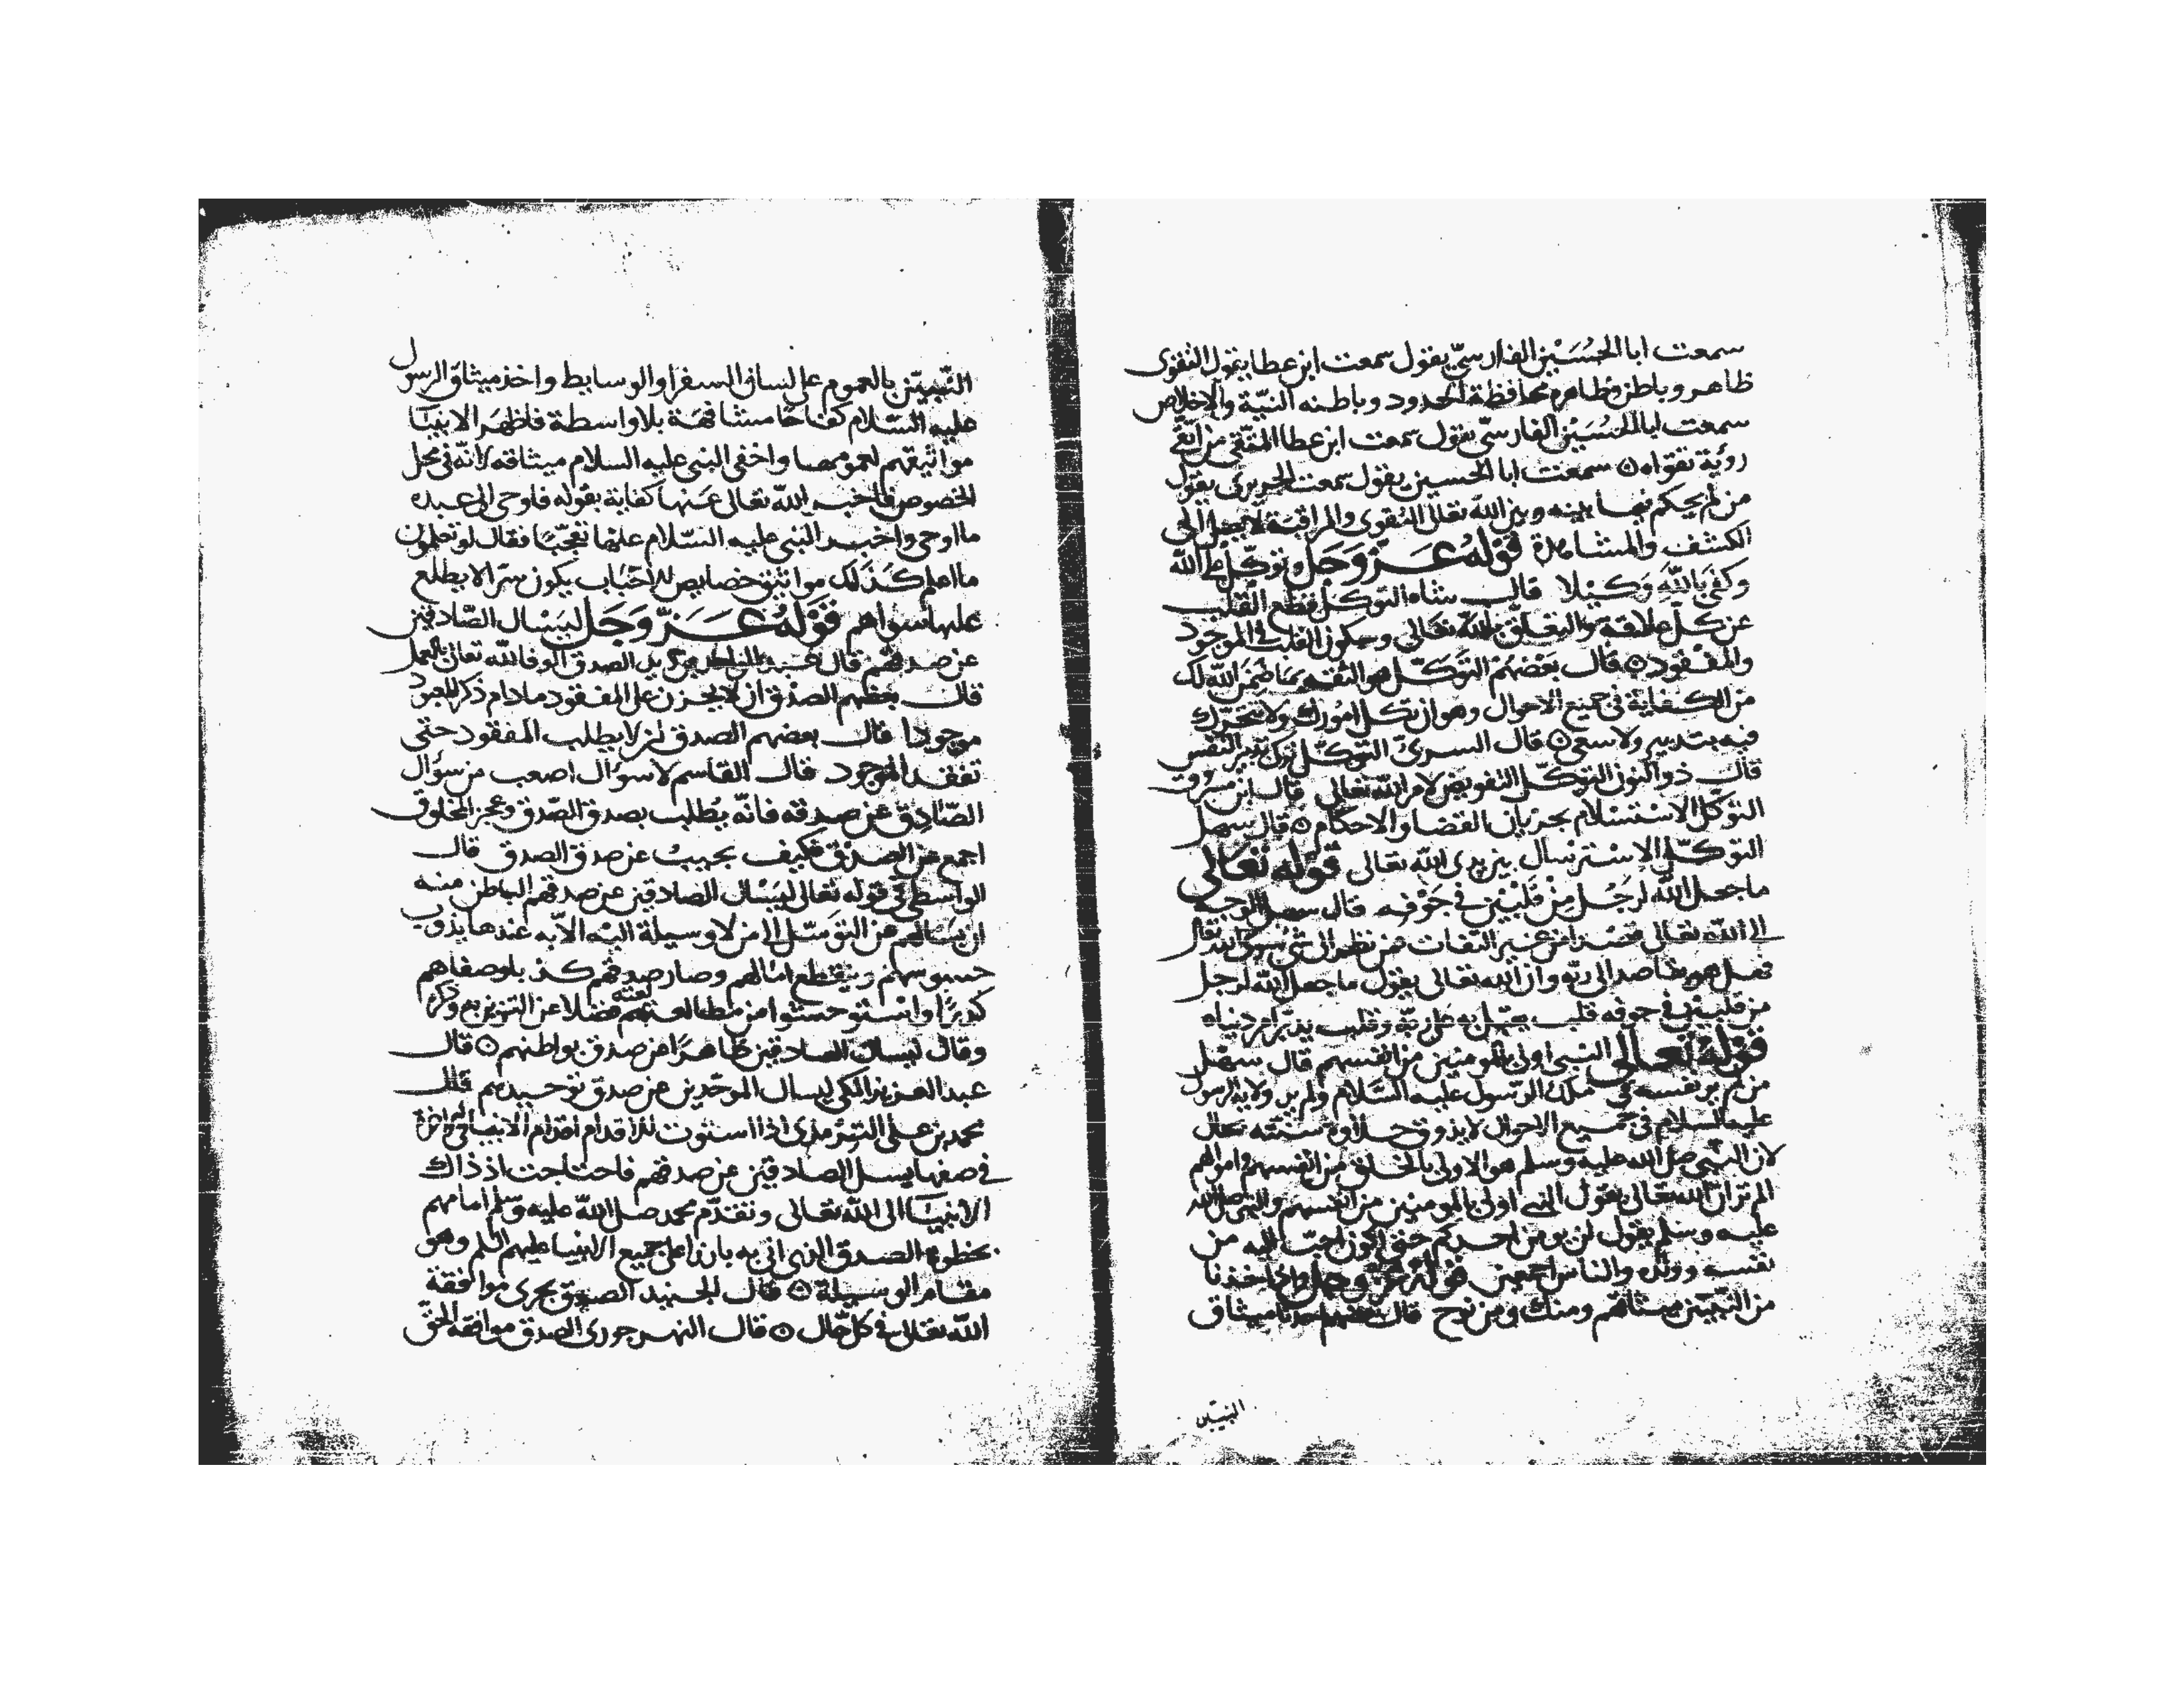 سمعت ابا الحسين الفارسيّ يقول سمعت ابن عطا يقول التقوى
ظاهر وباطن وظاهره محافظة الحدود وباطنه النيّة والاخلاص
سمعت ابا الحسين الفارسيّ يقول سمعت ابن عطا المتّقي من اتّقى
رؤية تقواه ۞ سمعت ابا الحسين يقول سمعت الجريرى يقول
من لم يحكم فيما بينه وبين الله تعالى التقوى والمراقبة لا يصل الى
الكشف والمشاهدة قَوْلهُ عَزّ وَجَل وتوكّل على الله
وكفى بالله وَكيلا قال شاه التوكل قطع القلب
عن كلّ علاقة والتعلّق بالله تعَالى وسكون القلب في الموجود
والمفقود ۞ قال بَعْضهُم التَوَكّل هو الثقة بمَا ضَمِنَ الله لك
من الكفاية في جميع الاحوال وهو ان تكل امورك ولا تتحرّك
فيه بتدبير ولا سعى ۞ قال السرىّ التوكّل ترك تدبير النفس
قال ذو النون التوكّل التفويض لامر الله تعالى قال ابن مسروق
التوكّل الاسْتسْلام بجريَان القضا والاحكام ۞ قال سهل
التوكّل الاسْترسال بين يدى الله تعالى قوله تعالى
ما جعل الله لرَجُل مِنْ قَلبْيْن في جَوْفه قال سهل
الى الله تعالى من غير التفات فمن نظر الى شئ سوى الله
فما هو بقاصد الى ربّه وان الله تعالى يقول ما جعل الله لرجل
من قلبين في جوفه قلب يقبل به على ربّه وقلب يدبّر امر دنياه
قوْلهُ تعالى النبى اولى بالمومنين من انفسهم قال سهل
من لم ير نفسه في ملك الرّسول عليه السّلام ولم ير ولاية الرسول
عليه السلام في جميع الاحوال لا يذوق حلاوة سنّته بحال
لان النبى صلى الله عليه وسلم هو الاولى بالخلق من انفسهم واموالهم
الم تر انّ الله تعالى يقول النبى اولى بالمومنين من انفسهم والنبى صلى الله
عليه وسلم يقول لن يومن احدكم حتى اكون احبّ اليه من
نفسه وولده والناس اجمعين قوله عز وجل واذ اخذنا
من النّبيّين ميثاقهم ومنك ومن نوح قال بعضهم اخذنا ميثاق
النبيّين
النّبيّين بالعموم على لسان السفرا والوسايط واخذ ميثاق الرسول
عليه السّلام كفاحًا مشافهَة بلا واسطة فاظهَر الانبيَا
مواثيقهم لعمومها واخفى النبى عليه السلام ميثاقه لانّه في محل
الخصوص فاخبر الله تعالى عَنها كفاية بقوله فاوحى الى عبده
ما اوحى واخبر النبى عليه السّلام عنها تعجّبًا فقال لو تعلمون
ما اعلم كذَلك مواثيق خصايص الاحْبَاب يكون سرّا لا يطلع
عليها سواهم قَوْلهُ عَزّ وَجَل ليَسْال الصّادقين
عن صدقهم قال بل الصدق الوفا لله تعالى بالعمل
قال بعضهم الصدق ان لا يحزن على المفقود ما دام ذكر المعبود
موجودا قال بعضهم الصدق ان لا يطلب المفقود حتى
تفقد الموجود قال القاسم لا سوال اصعب من سؤال
الصّادِق عن صدقه فانّه يُطلب بصدق الصّدق وعجز المخلوق
اجمع عن الصدق فكيف يجيبُ عن صدق الصدق قال
الواسطى في قوله تعالى ليَسْال الصادقين عن صدقهم الباطن منه
ان يسالهم عن التوَسّل الى من لا وسيلة اليْه الا به عندها يذوب
وينقطع امالهم وصار صدقهم كذبا وصفاهم
كدرًا واستوحشوا من مطالعتهم فضلا عن التزين به وذكره
وقال ليسال الصادقين ظاهرًا عن صدق بواطنهم ۞ قال
عبد العزيز المكى ليسال الموحّدين عن صدق توحيدهم قال
محمد بن على الترمذى اذا استوت الاقدام اقدام الانبيا
في صفها يسل الصادقين عن صدقهم فاحتاجت اذ ذاك
الانبيَا الى الله تعالى وتقدّم محمد صلى الله عليه وسلم امامهم
بخطوة الصدق الذى اتى به بارزا على جميع الانبيا عليهم السلم وهو
مقام الوسيلة ۞ قال الجنيد الصدق يجرى موافقة
الله تعالى في كل حَال ۞ قال النهرجورى الصدق موافقة الحقّ